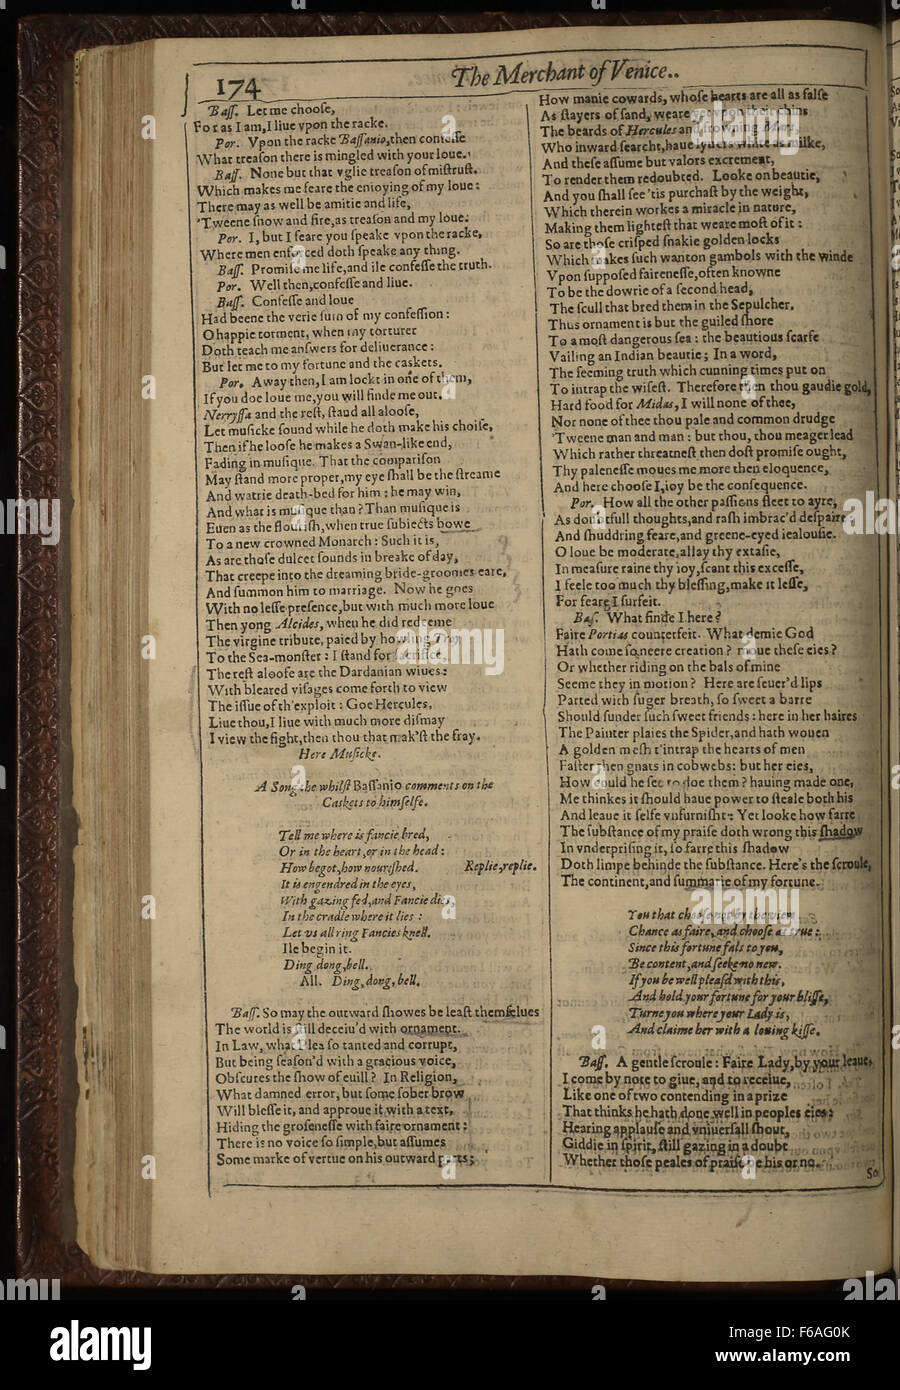 174
The Merchant of Venice..
Baſſ. Let me chooſe,
For as I am, I liue vpon the racke.
Por. Vpon the racke Baſſanio, then confeſſe
What treaſon there is mingled with your loue.
Baſſ. None but that vglie treaſon of miſtruſt.
Which makes me feare the enioying of my loue:
There may as well be amitie and life,
'Tweene ſnow and fire, as treaſon and my loue.
Por. I, but I feare you ſpeake vpon the racke,
Where men enforced doth ſpeake any thing.
Baſſ. Promiſe me life, and ile confeſſe the truth.
Por. Well then, confeſſe and liue.
Baſſ. Confeſſe and loue
Had beene the verie ſum of my confeſſion:
O happie torment, when my torturer
Doth teach me anſwers for deliuerance:
But let me to my fortune and the caskets.
Por. Away then, I am lockt in one of them,
If you doe loue me, you will finde me out.
Nerryſſa and the reſt, ſtand all alooſe,
Let muſicke ſound while he doth make his choiſe,
Then if he looſe he makes a Swan-like end,
Fading in muſique. That the compariſon
May ſtand more proper, my eye ſhall be the ſtreame
And watrie death-bed for him: he may win,
And what is muſique than? Than muſique is
Euen as the flouriſh, when true ſubiects bowe
To a new crowned Monarch: Such it is,
As are thoſe dulcet ſounds in breake of day,
That creepe into the dreaming bride-groomes eare,
And ſummon him to marriage. Now he goes
With no leſſe preſence, but with much more loue
Then yong Alcides, when he did redeeme
The virgine tribute, paied by howling Troy
To the Sea-monſter: I ſtand for ſacrifice,
The reſt alooſe are the Dardanian wiues:
With bleared viſages come forth to view
The iſſue of th'exploit: Goe Hercules,
Liue thou, I liue with much more diſmay
I view the fight, then thou that mak'ſt the fray.
Here Muſicke.
A Song the whilſt Baſſanio comments on the
Caskets to himſelfe.
Tell me where is fancie bred,
Or in the heart, or in the head:
How begot, how nouriſhed. Replie, replie.
It is engendred in the eyes,
With gazing fed, and Fancie dies,
In the cradle where it lies:
Let vs all ring Fancies knell.
Ile begin it.
Ding dong, bell.
All. Ding, dong, bell.
Baſſ. So may the outward ſhowes be leaſt themſelues
The world is ſtill deceiu'd with ornament.
In Law, what Plea ſo tanted and corrupt,
But being ſeaſon'd with a gracious voice,
Obſcures the ſhow of euill? In Religion,
What damned error, but ſome ſober brow
Will bleſſe it, and approue it with a text,
Hiding the groſeneſſe with faire ornament:
There is no voice ſo ſimple, but aſſumes
Some marke of vertue on his outward parts;
How manie cowards, whoſe hearts are all as falſe
As ſtayers of ſand, weare yet vpon their chins
The beards of Hercules and frowning Mars,
Who inward ſearcht, haue lyuers white as milke,
And theſe aſſume but valors excrement,
To render them redoubted. Looke on beautie,
And you ſhall ſee 'tis purchaſt by the weight,
Which therein workes a miracle in nature,
Making them lighteſt that weare moſt of it:
So are thoſe criſped ſnakie golden locks
Which makes ſuch wanton gambols with the winde
Vpon ſuppoſed faireneſſe, often knowne
To be the dowrie of a ſecond head,
The ſcull that bred them in the Sepulcher.
Thus ornament is but the guiled ſhore
To a moſt dangerous ſea: the beautious ſcarfe
Vailing an Indian beautie; In a word,
The ſeeming truth which cunning times put on
To intrap the wiſeſt. Therefore then thou gaudie gold,
Hard food for Midas, I will none of thee,
Nor none of thee thou pale and common drudge
'Tweene man and man: but thou, thou meager lead
Which rather threatneſt then doſt promiſe ought,
Thy paleneſſe moues me more then eloquence,
And here chooſe I, ioy be the conſequence.
Por. How all the other paſſions fleet to ayre,
As doubtfull thoughts, and raſh imbrac'd deſpaire:
And ſhuddring feare, and greene-eyed iealouſie.
O loue be moderate, allay thy extaſie,
In meaſure raine thy ioy, ſcant this exceſſe,
I feele too much thy bleſſing, make it leſſe,
For feare I ſurfeit.
Baſ. What finde I here?
Faire Portias counterfeit. What demie God
Hath come ſo neere creation? moue theſe eies?
Or whether riding on the bals of mine
Seeme they in motion? Here are ſeuer'd lips
Parted with ſuger breath, ſo ſweet a barre
Should ſunder ſuch ſweet friends: here in her haires
The Painter plaies the Spider, and hath wouen
A golden meſh t'intrap the hearts of men
Faſter then gnats in cobwebs: but her eies,
How could he ſee to doe them? hauing made one,
Me thinkes it ſhould haue power to ſteale both his
And leaue it ſelfe vnfurniſht: Yet looke how farre
The ſubſtance of my praiſe doth wrong this ſhadow
In vnderpriſing it, ſo farre this ſhadow
Doth limpe behinde the ſubſtance. Here's the ſcroule,
The continent, and ſummarie of my fortune.
You that chooſe not by the view
Chance as faire, and chooſe as true:
Since this fortune fals to you,
Be content, and ſeeke no new.
If you be well pleaſd with this,
And hold your fortune for your bliſſe,
Turne you where your Lady is,
And claime her with a louing kiſſe.
Baſſ. A gentle ſcroule: Faire Lady, by your leaue,
I come by note to giue, and to receiue,
Like one of two contending in a prize
That thinks he hath done well in peoples eies:
Hearing applauſe and vniuerſall ſhout,
Giddie in ſpirit, ſtill gazing in a doubt
Whether thoſe peales of praiſe be his or no.
So
alamy stock photo
F6AG0K
www.alamy.com